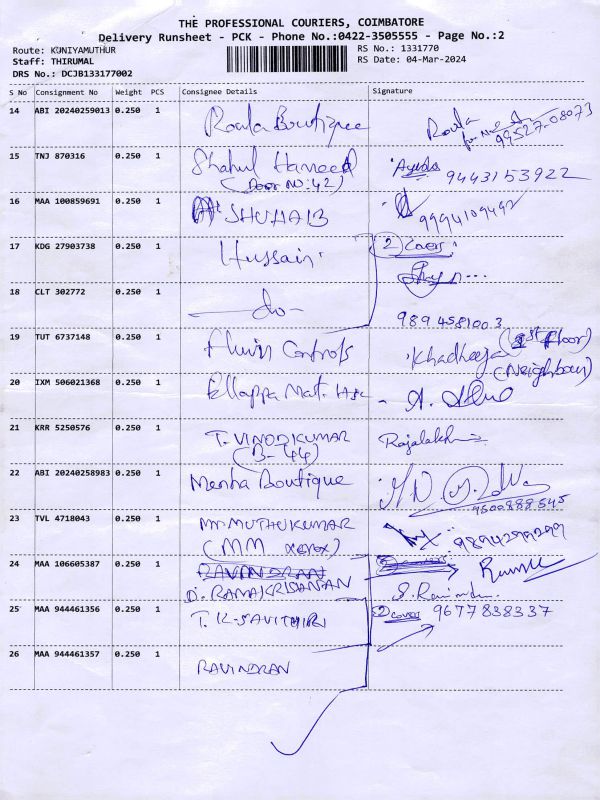 THE PROFESSIONAL COURIERS, COIMBATORE
Delivery Runsheet - PCK - Phone No.:0422-3505555 - Page No.:2
Route: KUNIYAMUTHUR
RS No.: 1331770
Staff: THIRUMAL
RS Date: 04-Mar-2024
DRS No.: DCJB133177002
S No Consignment No Weight PCS Consignee Details Signature
14 ABI 20240259013 0.250 1 Roula Boutique Roula
99527-08073
15 TNJ 870316 0.250 1 Shahul Hameed 9443153922
(Door No: 42)
16 MAA 100859691 0.250 1 SHUHAIB 9994109492
17 KDG 27903738 0.250 1 Hussain 2 Covers
18 CLT 302772 0.250 1 -do-
9894581003
19 TUT 6737148 0.250 1 Controls Khadheeja (1st Floor)
(Neighbour)
20 IXM 506021368 0.250 1 Ellappa Mat. Hr. Sec
21 KRR 5250576 0.250 1 T. VINODKUMAR Rajalakshmi
(B-44)
22 ABI 20240258983 0.250 1 Menha Boutique
9500888545
23 TVL 4718043 0.250 1 Mr. MUTHUKUMAR 9894299299
(MM xerox)
24 MAA 106605387 0.250 1 RAVINDRAN
D. RAMAKRISHNAN
S. Ravindran
25 MAA 944461356 0.250 1 T. K. SAVITHIRI 2 Covers 9677838337
26 MAA 944461357 0.250 1 RAVINDRAN